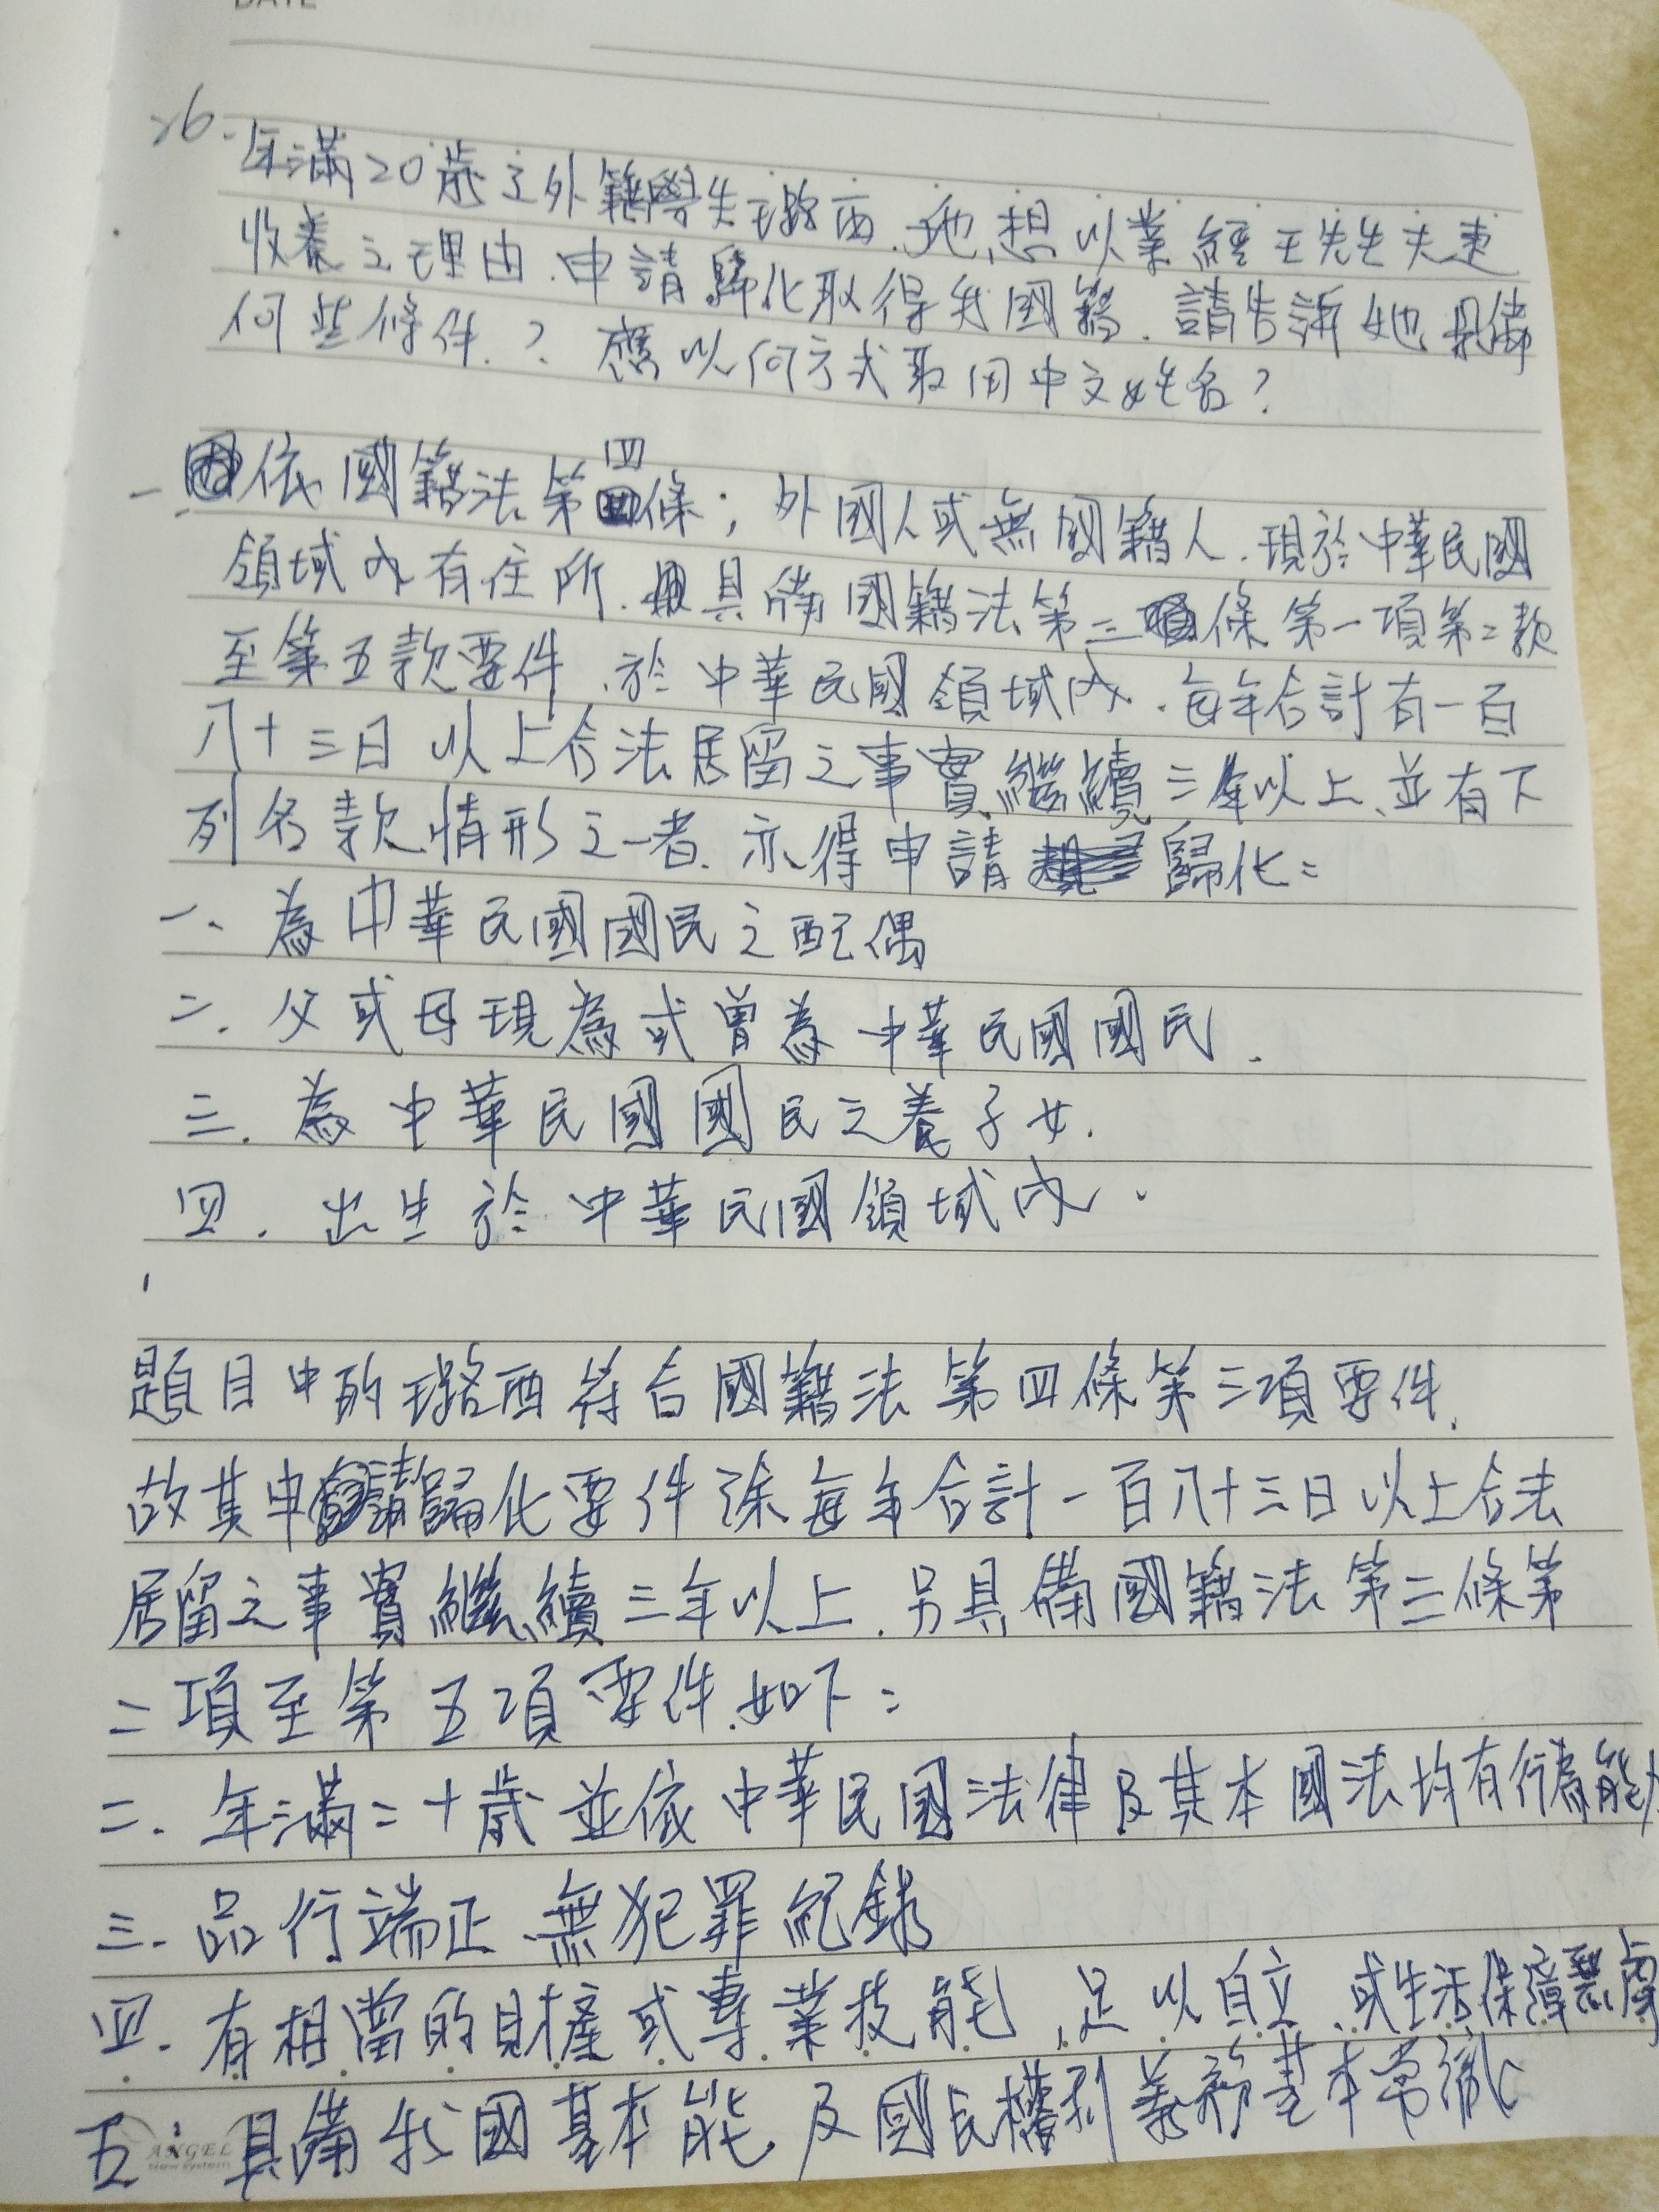 DATE
26.
年滿20歲之外籍學生璐西.她想以業經王先生夫妻
收養之理由.申請歸化取得我國籍.請告訴她具備
何些條件.?應以何方式取用中文姓名?
一.依國籍法第四條;外國人或無國籍人.現於中華民國
領域內有住所.具備國籍法第三條第一項第二款
至第五款要件、於中華民國領域內.每年合計有一百
八十三日以上合法居留之事實繼續三年以上、並有下
列各款情形之一者.亦得申請歸化:
一、為中華民國國民之配偶
二.父或母現為或曾為中華民國國民.
三.為中華民國國民之養子女.
四.出生於中華民國領域內.
題目中的璐西符合國籍法第四條第三項要件.
故其申請歸化要件除每年合計一百八十三日以上合法
居留之事實繼續三年以上.另具備國籍法第三條第
二項至第五項要件.如下:
二.年滿二十歲並依中華民國法律及其本國法均有行為能力
三.品行端正、無犯罪紀錄
四.有相當的財產或專業技能,足以自立、或生活保障無虞
五.具備我國基本能.及國民權利義務基本常識
ANGEL
New system